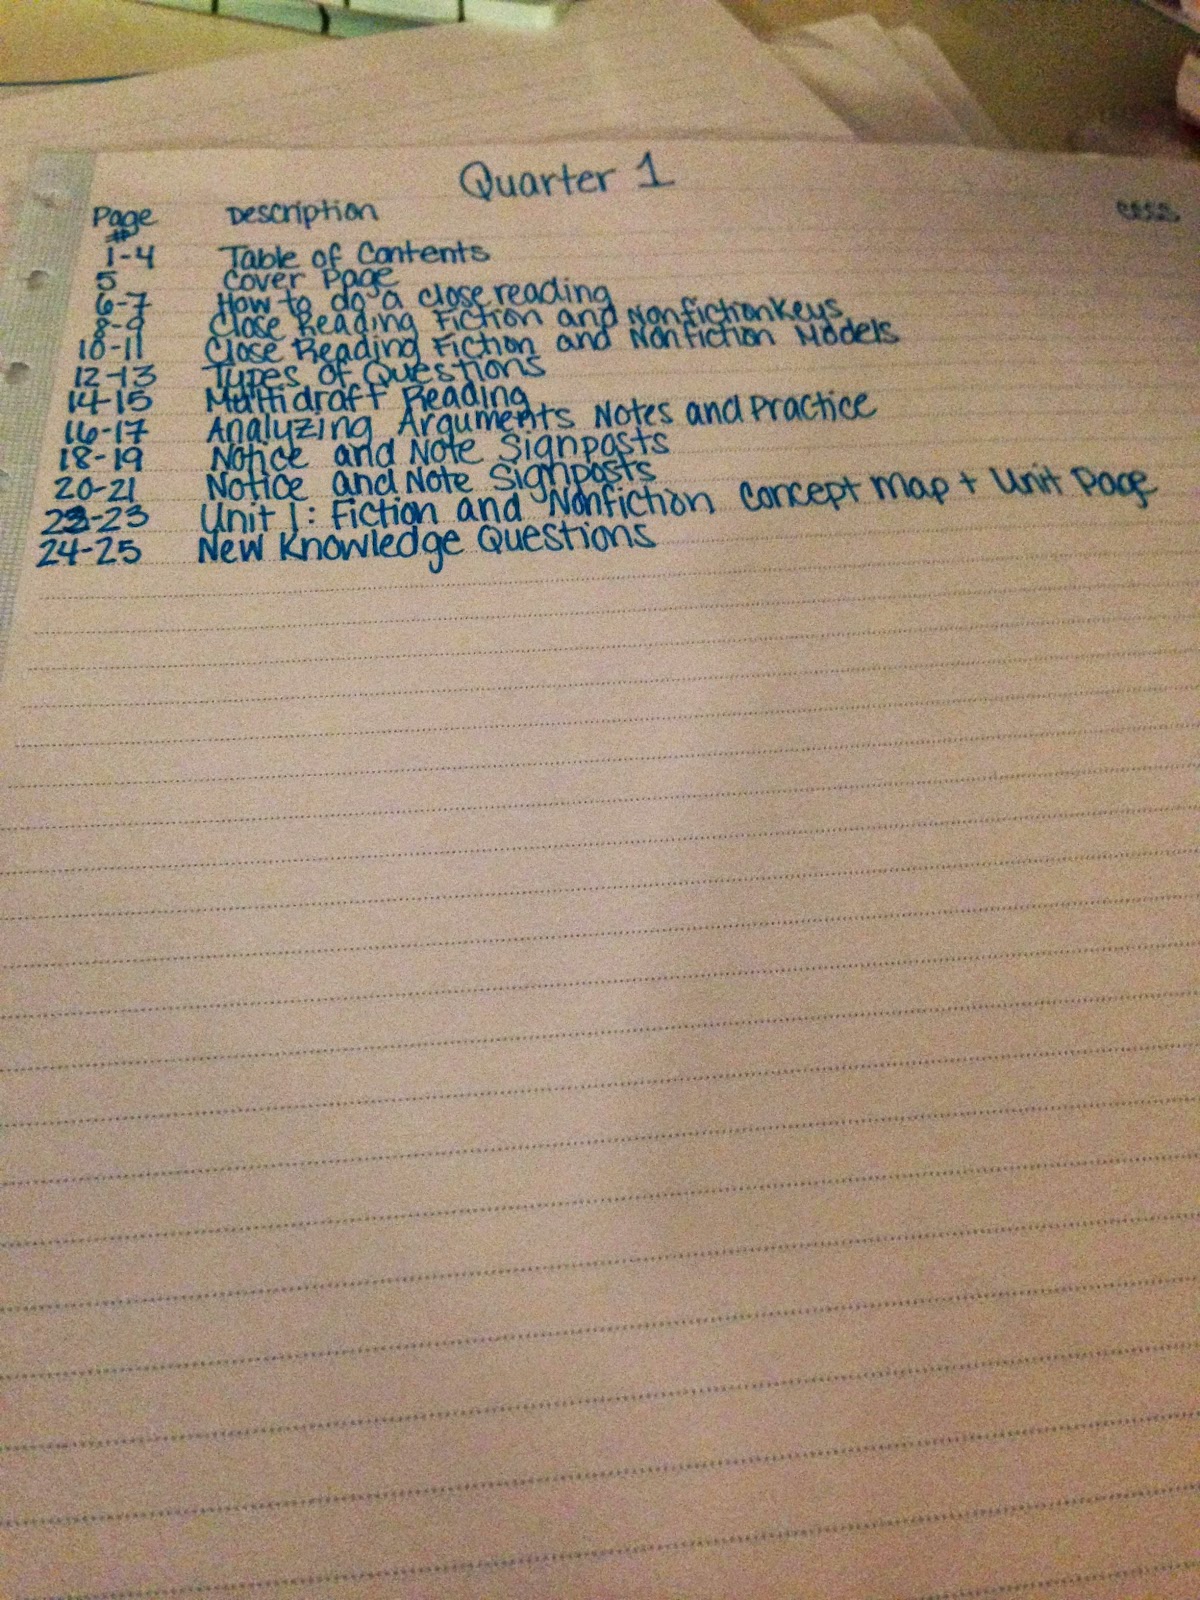 Quarter 1
Page # Description
1-4 Table of Contents
5 Cover Page
6-7 How to do a close reading
8-9 Close Reading Fiction and Nonfiction Keys
10-11 Close Reading Fiction and Nonfiction Models
12-13 Types of Questions
14-15 Multidraft Reading
16-17 Analyzing Arguments Notes and Practice
18-19 Notice and Note Signposts
20-21 Notice and Note Signposts
22-23 Unit 1: Fiction and Nonfiction Concept Map + Unit Page
24-25 New Knowledge Questions